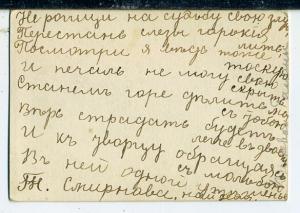 Не ропщи на судьбу свою злую
Перестань слезы горькия лить
Посмотри я ведь тоже тоскую
И печаль не могу свою скрыть
Станемъ горе дѣлить мы съ тобою
Вѣрь страдать будетъ легче въ двоемъ
И къ Творцу обращаясь съ мольбою
Въ ней одной утѣшенье
Т. Смирнова, найдемъ.